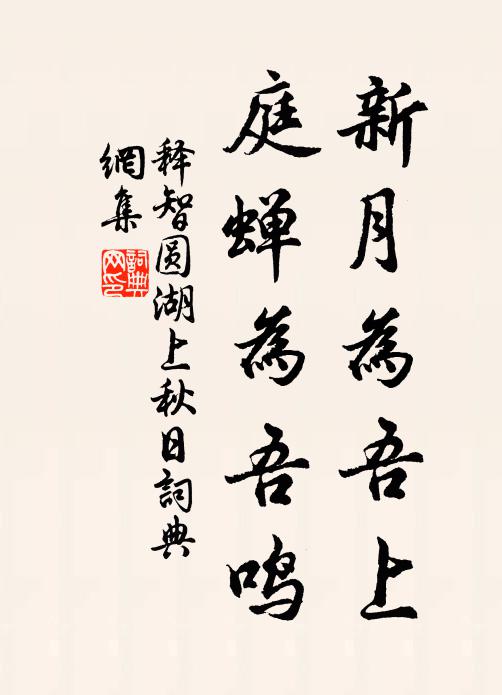 新月為吾上
庭蝉為吾鸣
释智圆湖上秋日詞典
網集
詞典
网印